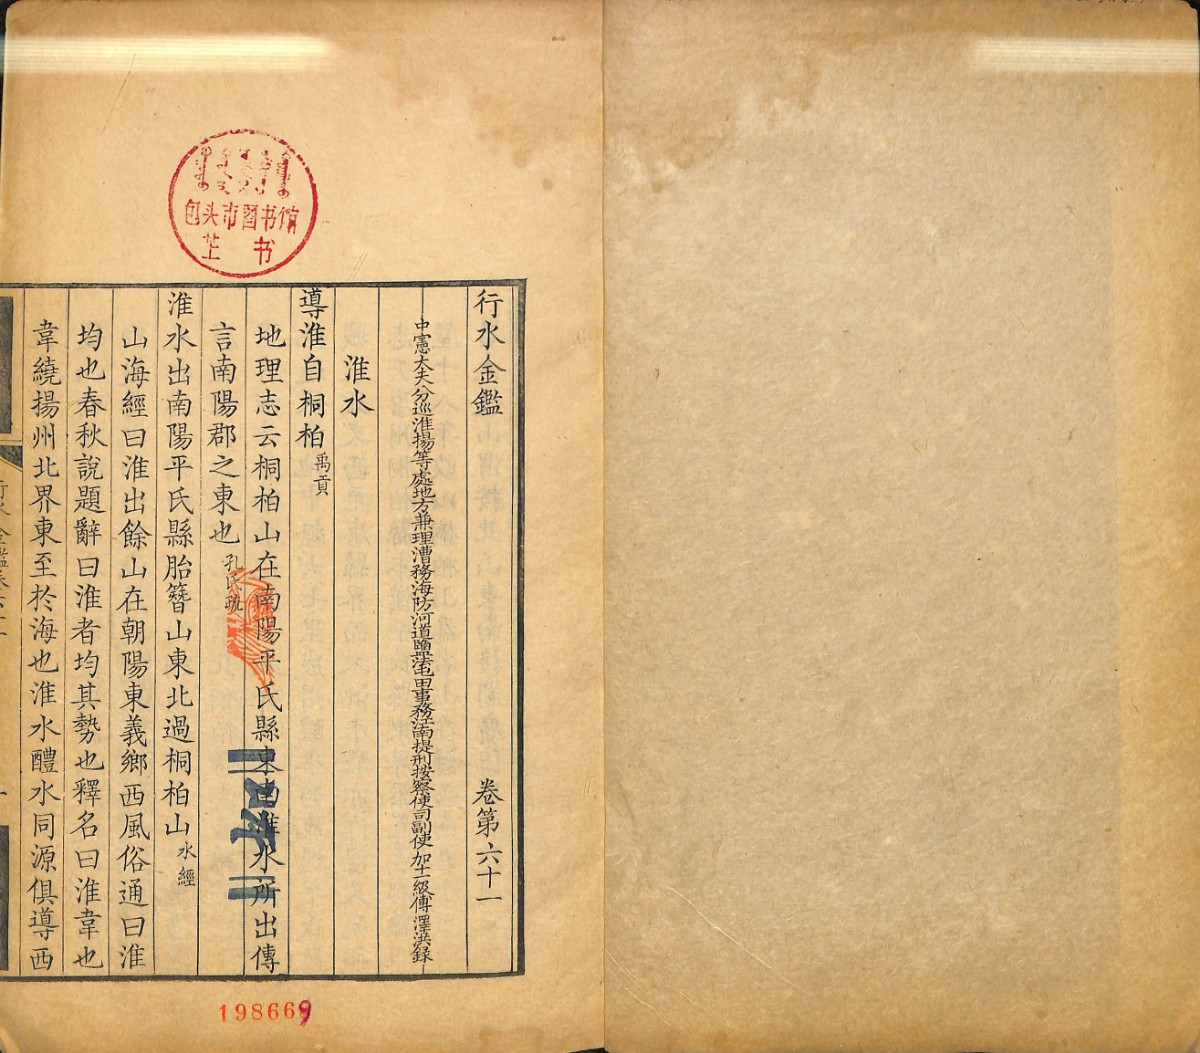 包头市图书馆
芷书
行水金鑑 卷第六十一
中憲大夫分巡淮揚等處地方兼理漕務海防河道鹽法屯田事務江南提刑按察使司副使加十一級傅澤洪録
淮水
導淮自桐柏禹貢
地理志云桐柏山在南陽平氏縣東南淮水所出傳
言南陽郡之東也孔氏疏
淮水出南陽平氏縣胎簪山東北過桐柏山水經
山海經曰淮出餘山在朝陽東義鄉西風俗通曰淮
均也春秋說題辭曰淮者均其勢也釋名曰淮韋也
韋繞揚州北界東至於海也淮水醴水同源俱導西
行水金鑑卷六十一
一
198669